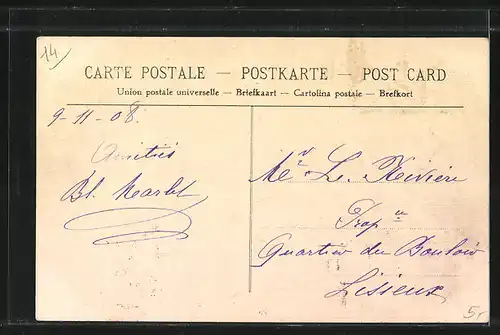 14
CARTE POSTALE — POSTKARTE — POST CARD
Union postale universelle — Briefkaart — Cartolina postale — Brefkort
9-11-08.
Amitiés
Mr. L. Rivière
Prop re
Quartier du Bouloir
Lisieux
5.-